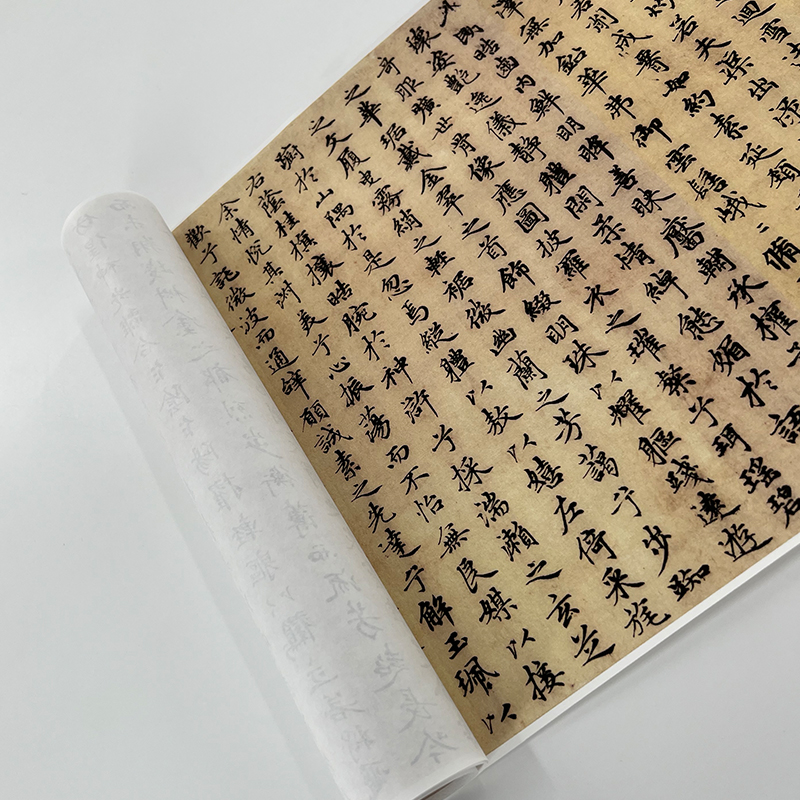 迴雪
灼若夫渠出淥
削成肩如約素延頸
澤無加鉛華弗御雲髻峨〻脩
朗皓齒內鮮明眸善睞靨輔承權
瓌姿艷逸儀靜體閑柔情綽態媚於語
奇服曠世骨像應圖披羅衣之璀粲兮珥瑤碧
之華琚戴金翠之首飾綴明珠以耀軀踐遠遊
之文履曳霧綃之輕裾微幽蘭之芳藹兮步踟
躕於山隅於是忽焉縱體以敖以嬉左倚采旄
右蔭桂旗攘皓腕於神滸兮採湍瀨之玄芝
余情悅其淑美兮心振蕩而不怡無良媒以接
歡兮託微波而通辭願誠素之先達兮解玉珮以